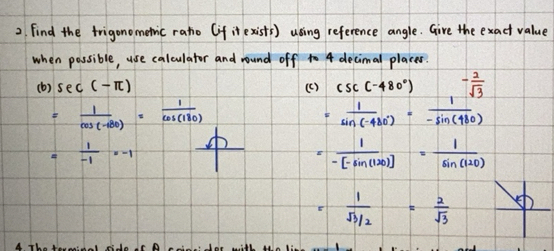 2. Find the trigonometric ratio (if it exists) using reference angle. Give the exact value
when possible, use calculator and round off to 4 decimal places.
(b) sec (-π)
= 1/cos(-180) = 1/cos(180)
= 1/-1 = -1
(c) csc (-480°) -2/√3
= 1/sin(-480°) = 1/-sin(480)
= 1/-[-sin(120)] = 1/sin(120)
= 1/√3/2 = 2/√3
4. The terminal side of θ coincides with the line